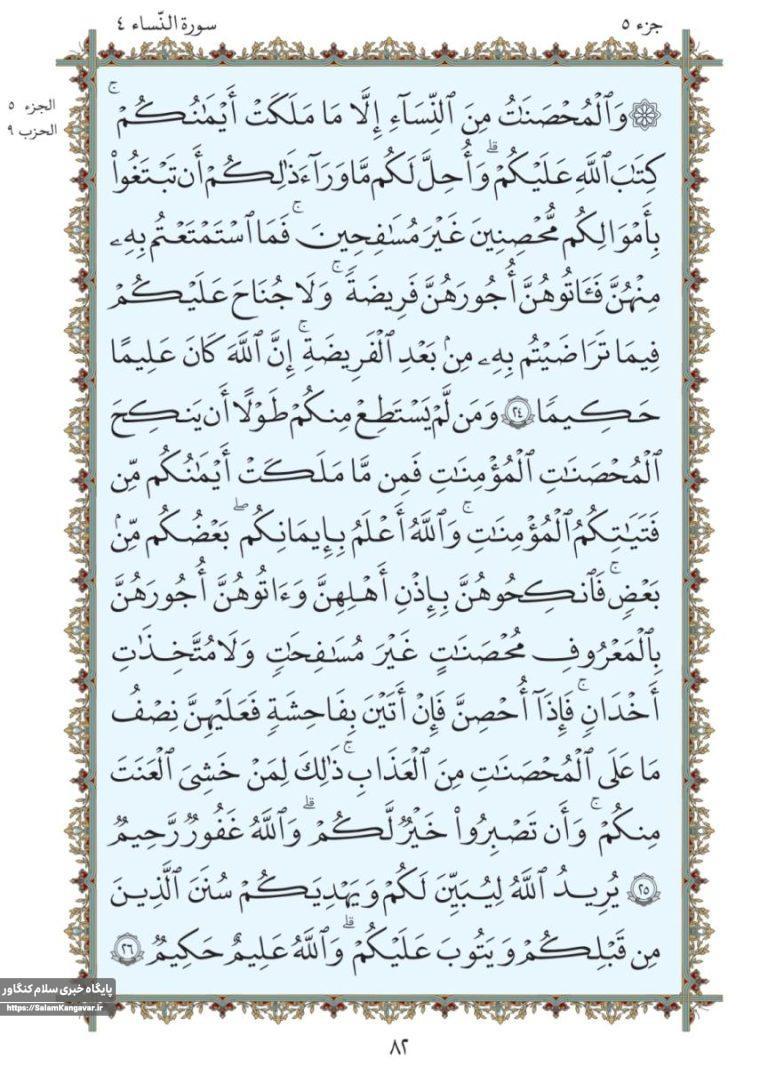 جزء ٥
سورة النّساء ٤
الجزء ٥
الحزب ٩
۞ وَٱلْمُحْصَنَٰتُ مِنَ ٱلنِّسَآءِ إِلَّا مَا مَلَكَتْ أَيْمَٰنُكُمْ ۚ
كِتَٰبَ ٱللَّهِ عَلَيْكُمْ ۗ وَأُحِلَّ لَكُم مَّا وَرَآءَ ذَٰلِكُمْ أَن تَبْتَغُوا۟
بِأَمْوَٰلِكُم مُّحْصِنِينَ غَيْرَ مُسَٰفِحِينَ ۚ فَمَا ٱسْتَمْتَعْتُم بِهِۦ
مِنْهُنَّ فَـَٔاتُوهُنَّ أُجُورَهُنَّ فَرِيضَةً ۚ وَلَا جُنَاحَ عَلَيْكُمْ
فِيمَا تَرَٰضَيْتُم بِهِۦ مِنۢ بَعْدِ ٱلْفَرِيضَةِ ۚ إِنَّ ٱللَّهَ كَانَ عَلِيمًا
حَكِيمًا ٢٤ وَمَن لَّمْ يَسْتَطِعْ مِنكُمْ طَوْلًا أَن يَنكِحَ
ٱلْمُحْصَنَٰتِ ٱلْمُؤْمِنَٰتِ فَمِن مَّا مَلَكَتْ أَيْمَٰنُكُم مِّن
فَتَيَٰتِكُمُ ٱلْمُؤْمِنَٰتِ ۚ وَٱللَّهُ أَعْلَمُ بِإِيمَٰنِكُم ۖ بَعْضُكُم مِّنۢ
بَعْضٍ ۚ فَٱنكِحُوهُنَّ بِإِذْنِ أَهْلِهِنَّ وَءَاتُوهُنَّ أُجُورَهُنَّ
بِٱلْمَعْرُوفِ مُحْصَنَٰتٍ غَيْرَ مُسَٰفِحَٰتٍ وَلَا مُتَّخِذَٰتِ
أَخْدَانٍ ۚ فَإِذَآ أُحْصِنَّ فَإِنْ أَتَيْنَ بِفَٰحِشَةٍ فَعَلَيْهِنَّ نِصْفُ
مَا عَلَى ٱلْمُحْصَنَٰتِ مِنَ ٱلْعَذَابِ ۚ ذَٰلِكَ لِمَنْ خَشِىَ ٱلْعَنَتَ
مِنكُمْ ۚ وَأَن تَصْبِرُوا۟ خَيْرٌ لَّكُمْ ۗ وَٱللَّهُ غَفُورٌ رَّحِيمٌ
٢٥ يُرِيدُ ٱللَّهُ لِيُبَيِّنَ لَكُمْ وَيَهْدِيَكُمْ سُنَنَ ٱلَّذِينَ
مِن قَبْلِكُمْ وَيَتُوبَ عَلَيْكُمْ ۗ وَٱللَّهُ عَلِيمٌ حَكِيمٌ ٢٦
پایگاه خبری سلام کنگاور
https://SalamKangavar.ir
٨٢